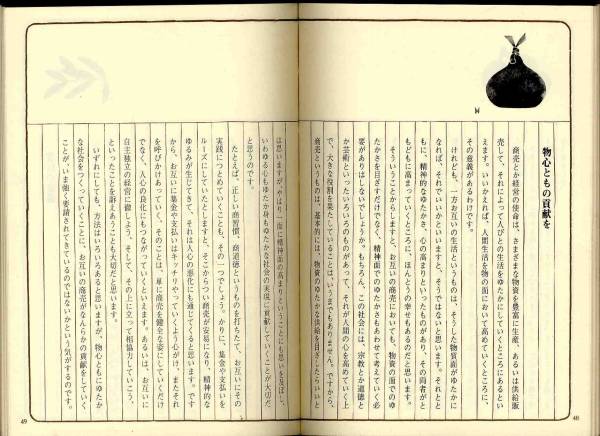 物心ともの貢献を
商売とか経営の使命は、さまざまな物資を豊富に生産、あるいは供給販
売して、それによって人びとの生活をゆたかにしていくところにあるとい
えます。いいかえれば、人間生活を物の面において高めていくところに、
その意義があるわけです。
けれども、一方お互いの生活というものは、そうした物質面がゆたかに
なれば、それでいいかといいますと、そうではないと思います。それとと
もに、精神的なゆたかさ、心の高まりといったものがあり、その両者がと
もどもに高まっていくところに、ほんとうの幸せもあるのだと思います。
そういうことからしますと、お互いの商売においても、物資の面でのゆ
たかさを目ざすだけでなく、精神面でのゆたかさもあわせて考えていく必
要がありはしないでしょうか。もちろん、この社会には、宗教とか道徳と
か芸術といったいろいろのものがあって、それが人間の心を高めていく上
で、大きな役割を果たしていることは、いうまでもありません。ですから、
商売というものは、基本的には、物資のゆたかな供給を目ざしたらいいと
は思いますが、やはり一面に精神面の高まりということにも思いを及ぼし、
いわゆる心もゆたか身もゆたかな社会の実現に貢献していくことが大切だ
と思うのです。
たとえば、正しい商習慣、商道徳というものを打ちたて、お互いにその
実践につとめていくことも、その一つでしょう。かりに、集金や支払いを
ルーズにしていたとしますと、そこからつい商売が安易になり、精神的な
ゆるみが生じてきて、それは人心の悪化にも通じてくると思います。です
から、お互いに集金や支払いはキッチリやっていくよう心がけ、またそれ
を呼びかけあっていく、そのことは、単に商売を健全な姿にしていくだけ
でなく、人心の良化にもつながっていくといえます。あるいは、お互いに
自主独立の経営に徹しよう、そして、その上に立って相協力していこう、
といったことを訴えあうことも大切だと思います。
いずれにしても、方法はいろいろあると思いますが、物心ともにゆたか
な社会をつくっていくことに、お互いの商売がなんらかの貢献をしていく
ことが、いま強く要請されてきているのではないかという気がするのです。
48
49